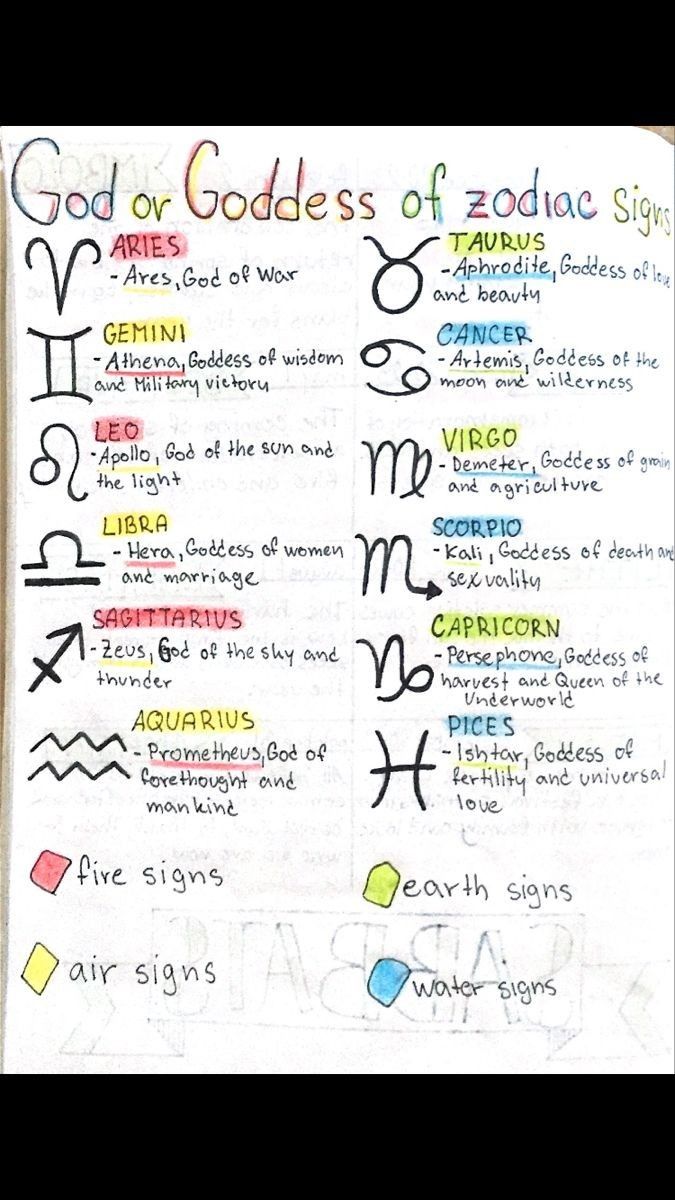 God or Goddess of zodiac signs
ARIES
- Ares, God of War
TAURUS
- Aphrodite, Goddess of love
and beauty
GEMINI
- Athena, Goddess of wisdom
and Military victory
CANCER
- Artemis, Goddess of the
moon and wilderness
LEO
- Apollo, God of the sun and
the light
VIRGO
- Demeter, Goddess of grain
and agriculture
LIBRA
- Hera, Goddess of women
and marriage
SCORPIO
- Kali, Goddess of death and
sexuality
SAGITTARIUS
- Zeus, God of the sky and
thunder
CAPRICORN
- Persephone, Goddess of
harvest and Queen of the
Underworld
AQUARIUS
- Prometheus, God of
forethought and
mankind
PICES
- Ishtar, Goddess of
fertility and universal
love
fire signs
earth signs
air signs
water signs